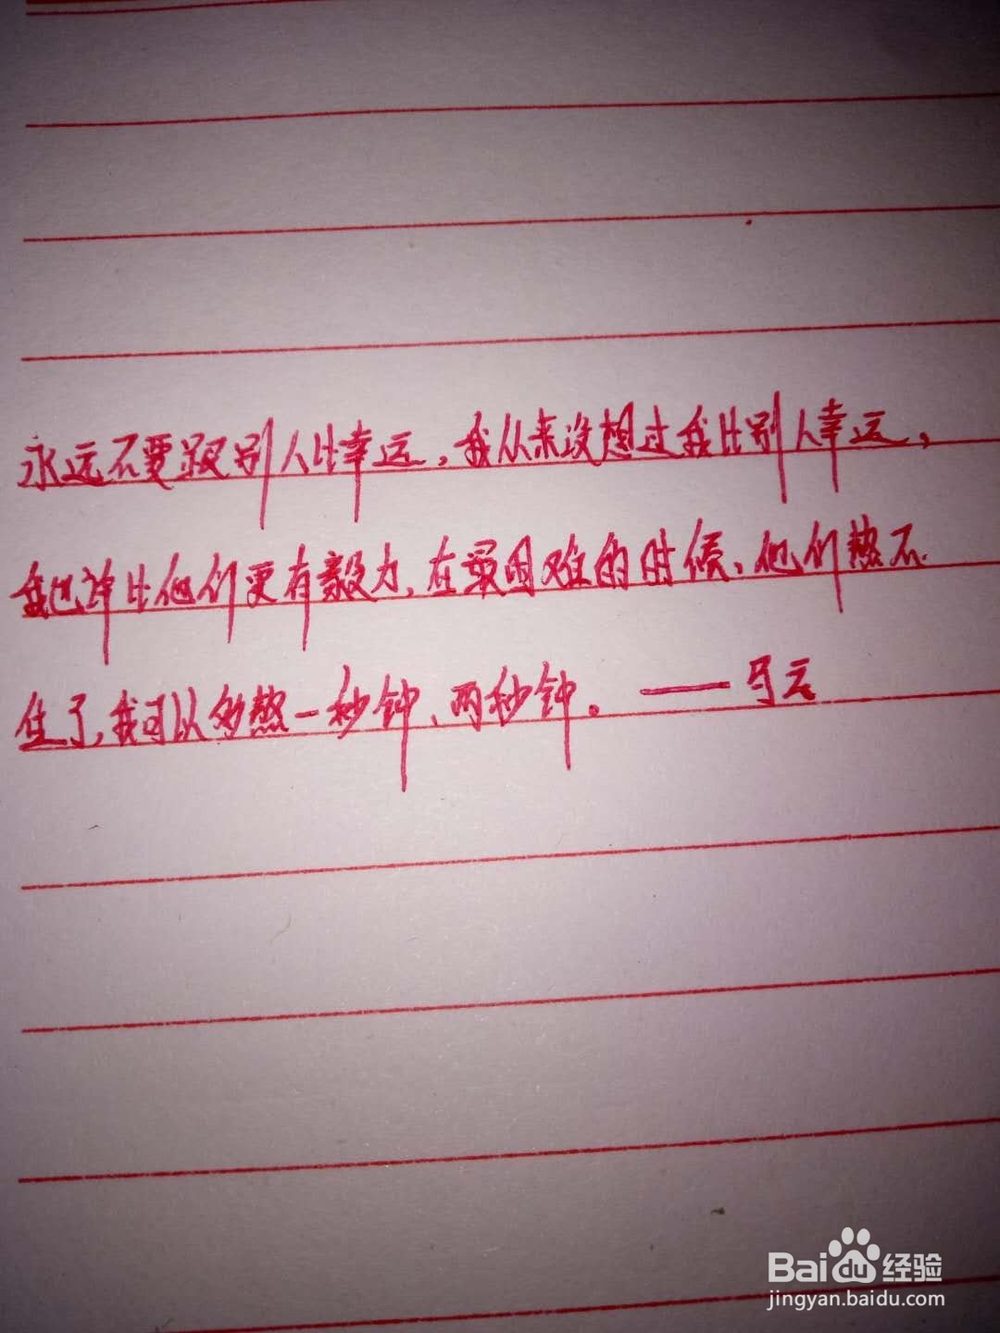 永远不要跟别人比幸运,我从来没想过我比别人幸运,
我也许比他们更有毅力,在最困难的时候、他们熬不
住了,我可以多熬一秒钟、两秒钟。——马云
Baidu经验
jingyan.baidu.com